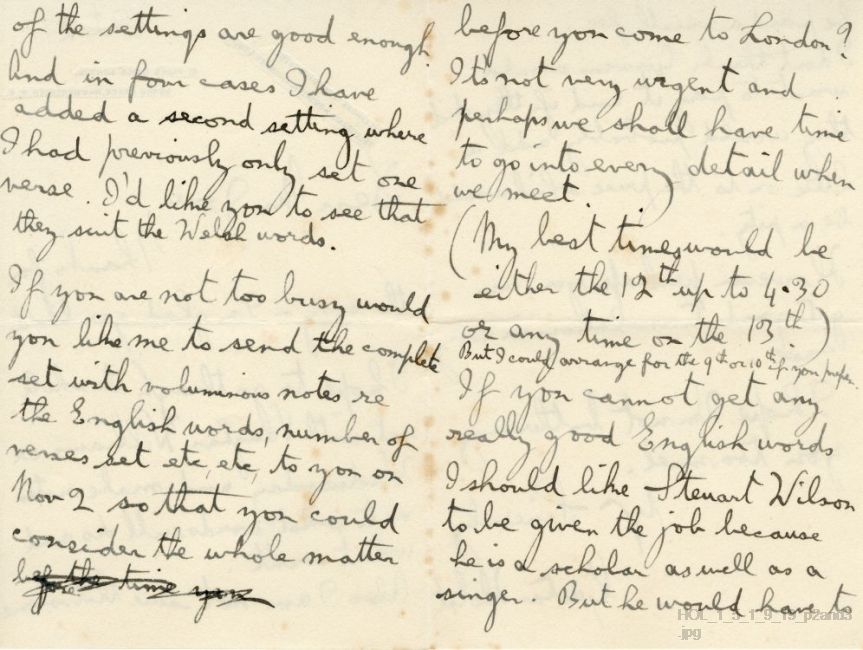 of the settings are good enough.
And in four cases I have
added a second setting where
I had previously only set one
verse. I'd like you to see that
they suit the Welsh words.
If you are not too busy would
you like me to send the complete
set with voluminous notes re
the English words, number of
verses set etc etc, to you on
Nov 2 so that you could
consider the whole matter
before the time you
before you come to London?
It's not very urgent and
perhaps we shall have time
to go into every detail when
we meet.
(My best times would be
either the 12th up to 4.30
or any time on the 13th.)
But I could arrange for the 9th or 10th if you prefer.
If you cannot get any
really good English words
I should like Steuart Wilson
to be given the job because
he is a scholar as well as a
singer. But he would have to
HOL_1_5_1_9_19_p2and3
.jpg